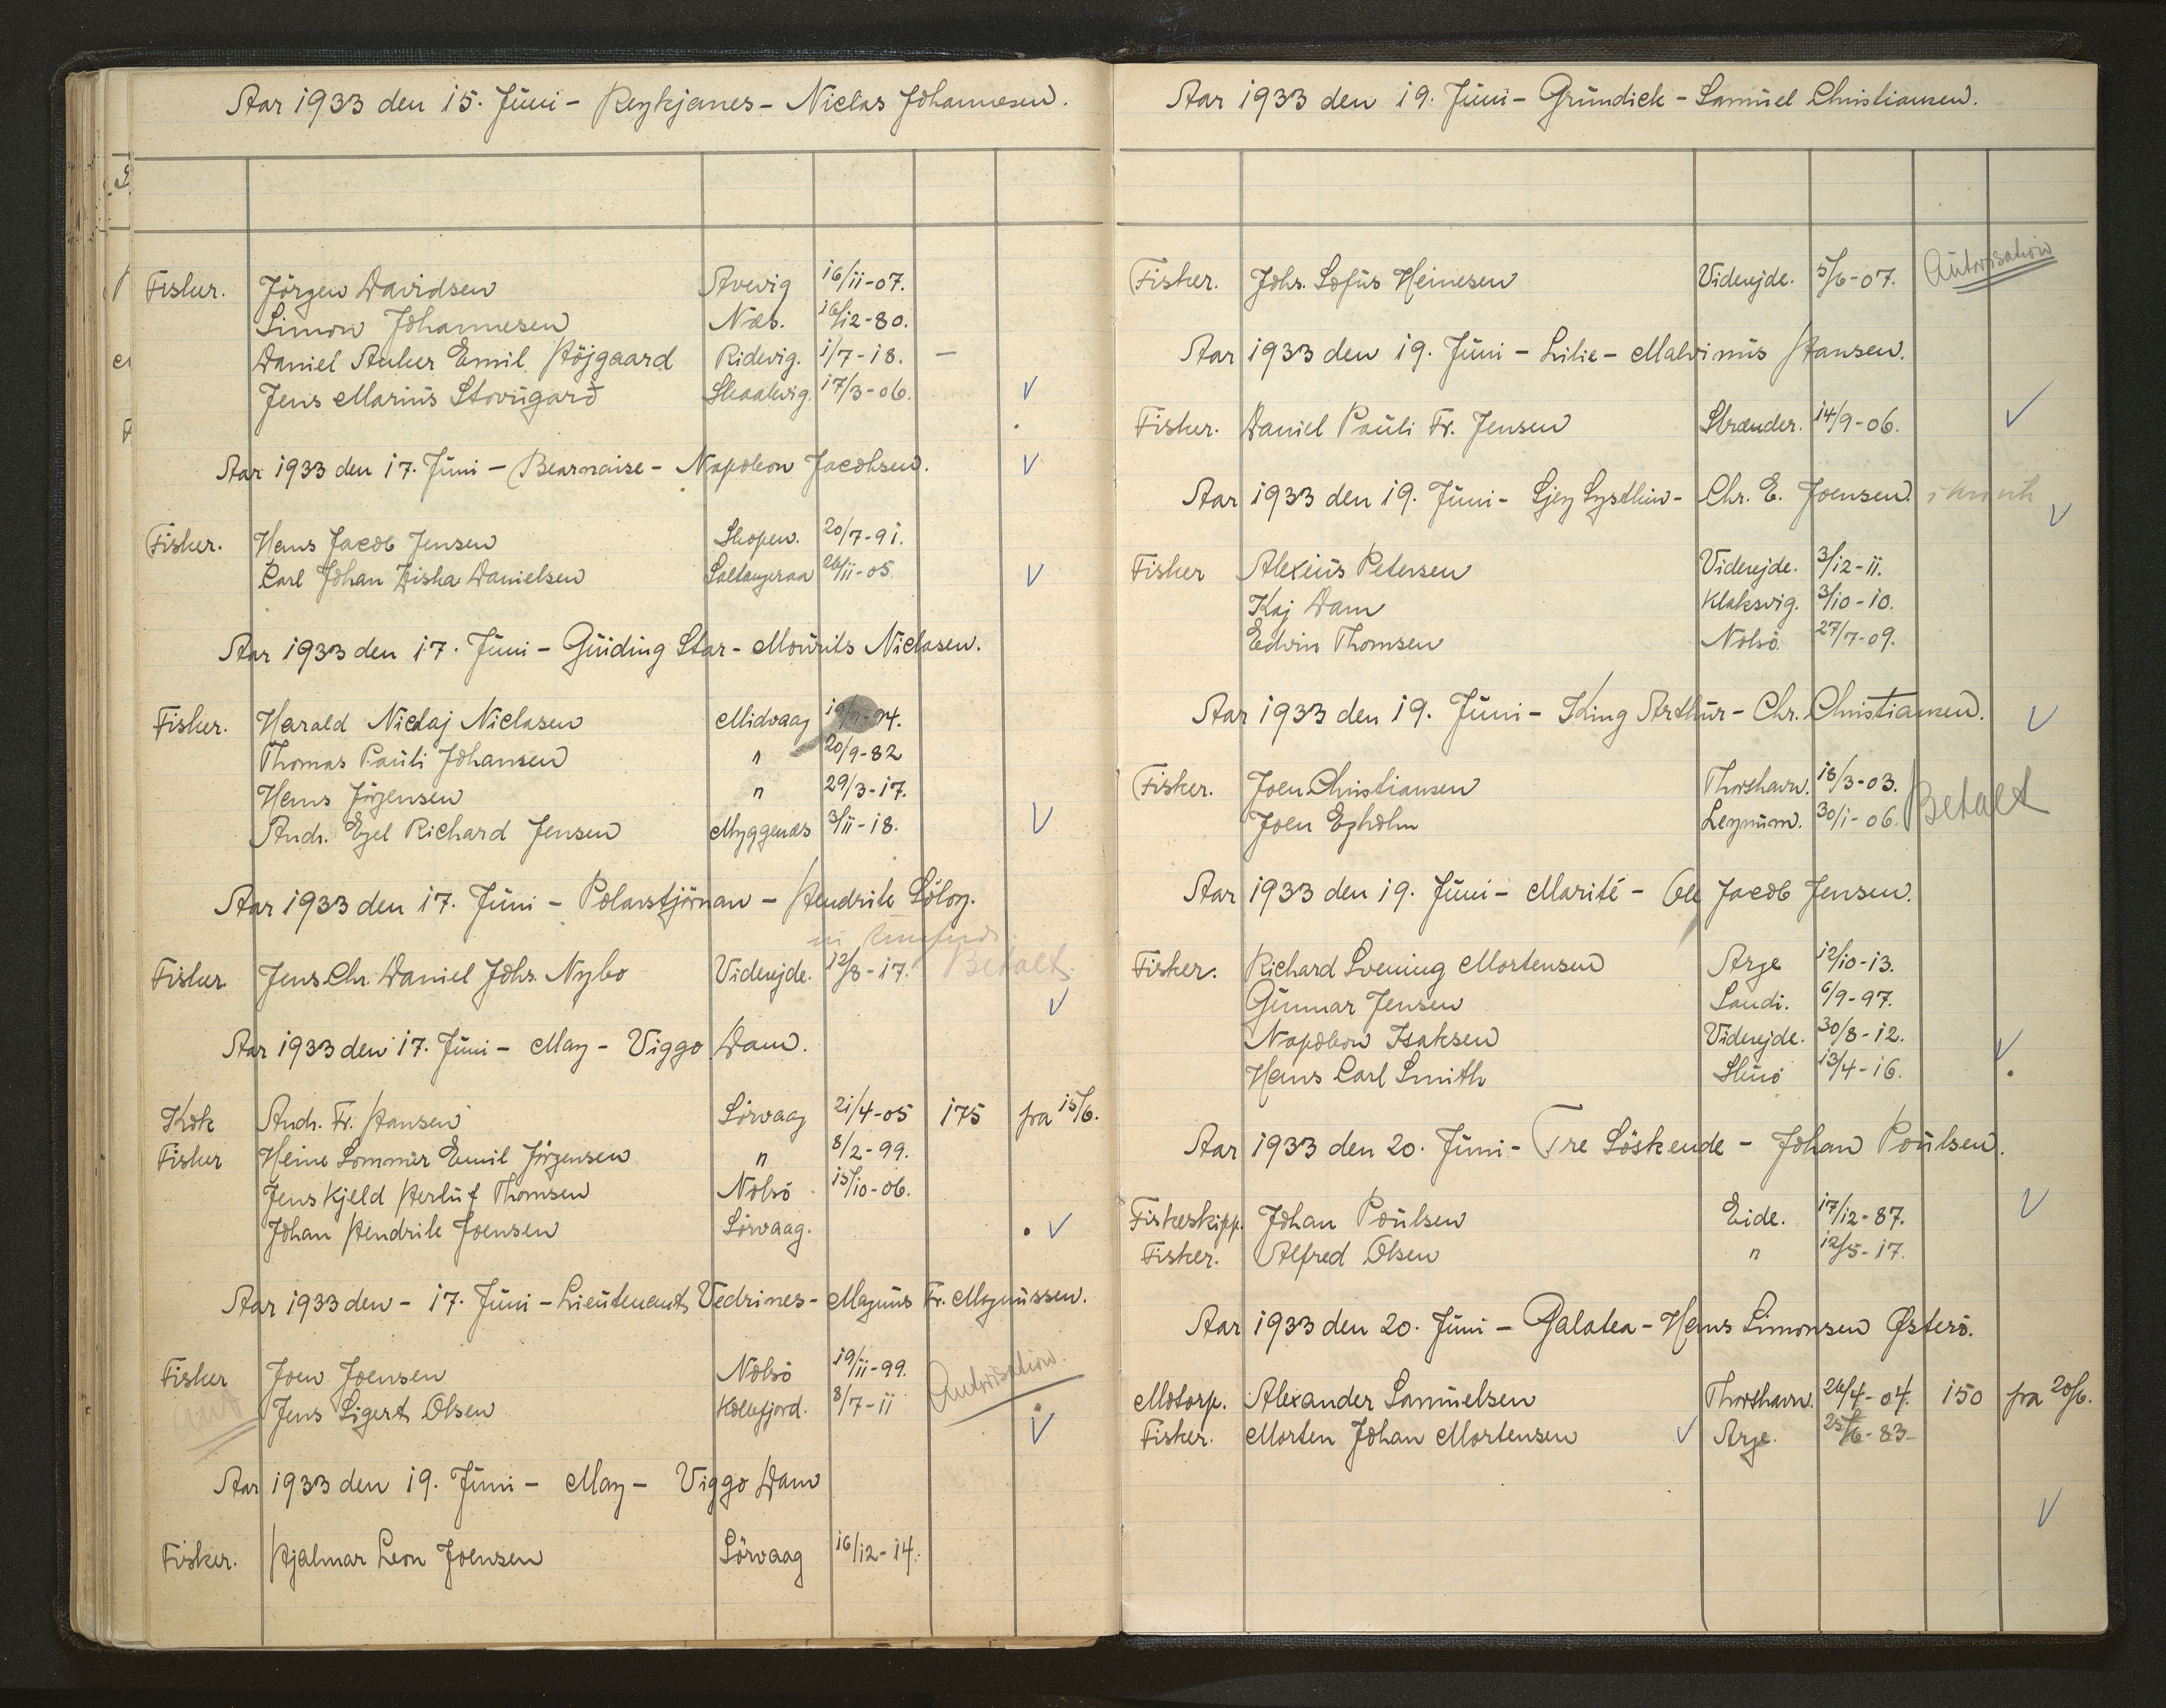 Aar 1933 den 15. Juni - Reykjanes - Niclas Johannesen.
Fisker. Jörgen Davidsen Arvevig 16/11-07.
Simon Johannesen Næs. 16/12-80.
Daniel Anker Emil Höjgaard Ridevig. 1/7-18. —
Jens Marius Stovugarð Skaalevig. 17/3-06. ✓
Aar 1933 den 17. Juni - Bearnaise - Napoleon Jacobsen. ✓
Fisker. Hans Jacob Jensen Skopen. 20/7-91.
Carl Johan Ziska Danielsen Saltangeraa 26/11-05. ✓
Aar 1933 den 17. Juni - Guiding Star - Mourits Niclasen.
Fisker. Harald Niclaj Niclasen Midvaag -94.
Thomas Pauli Johansen " 20/9-82
Hans Jörgensen " 29/3-17.
Andr. Ejel Richard Jensen Myggenæs 3/11-18. ✓
Aar 1933 den 17. Juni - Polarstjörnan - Hendrik Sölvy.
Fisker Jens Chr. Daniel Johs. Nybo Viderejde. 12/8-17. Betalt.
✓
Aar 1933 den 17. Juni - May - Viggo Dam.
Kok Andr. Fr. Hansen Sörvaag 21/4-05 175 fra 15/6.
Fisker Heine Sommer Emil Jörgensen " 8/2-99.
Jens Kjeld Herluf Thomsen Nolsö 15/10-06.
Johan Hendrik Joensen Sörvaag. ✓
Aar 1933 den - 17. Juni - Lieutenant Vedrines - Magnus Fr. Magnussen.
Fisker Joen Joensen Nolsö 19/11-99. Autorisation.
Jens Sigert Olsen Kollefjord. 8/7-11 ✓
Aar 1933 den 19. Juni - May - Viggo Dam
Fisker. Hjalmar Leon Joensen Sörvaag 16/12-14.
Aar 1933 den 19. Juni - Grundick - Samuel Christiansen.
Fisker. Johs. Sofus Heinesen Viderejde. 5/6-07. Autorisation
Aar 1933 den 19. Juni - Lilie - Malvinus Hansen.
Fisker. Daniel Pauli Fr. Jensen Strænder. 14/9-06. ✓
Aar 1933 den 19. Juni - Sjey Systkin - Chr. E. Joensen.
✓
Fisker Alexius Petersen Viderejde. 3/12-11.
Kaj Dam Klaksvig. 3/10-10.
Edvin Thomsen Nolsö. 27/7-09.
Aar 1933 den 19. Juni - King Arthur - Chr. Christiansen. ✓
Fisker. Joen Christiansen Thorshavn. 18/3-03.
Joen Egholm Leynum. 30/1-06. Betalt
Aar 1933 den 19. Juni - Marité - Ole Jacob Jensen.
Fisker. Richard Svening Mortensen Arge 12/10-13.
Gunnar Jensen Sandi. 6/9-97.
Napoleon Isaksen Viderejde. 30/8-12. ✓
Hans Carl Smith Skuö 13/4-16.
Aar 1933 den 20. Juni - Tre Söskende - Johan Poulsen.
Fiskeskipp. Johan Poulsen Eide. 17/12-87. ✓
Fisker. Alfred Olsen " 12/5-17.
Aar 1933 den 20. Juni - Galatea - Hans Simonsen Østerö.
Motorp. Alexander Samuelsen Thorshavn. 26/4-04. 150 fra 20/6.
Fisker. Morten Johan Mortensen ✓ Arge. 25/6-83-
✓